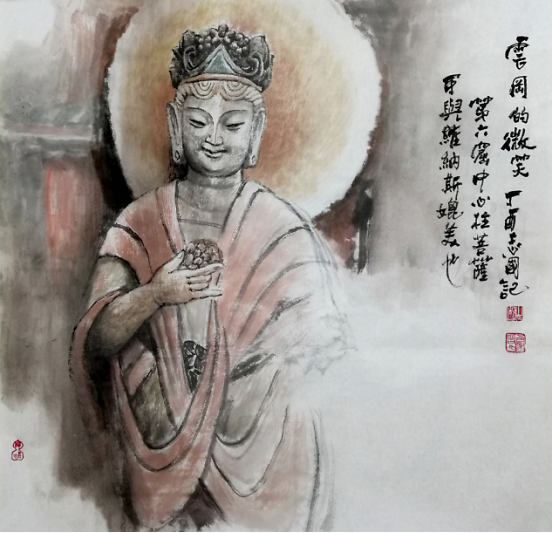 雲岡的微笑 丁酉志國記
第六窟中心柱菩薩
可與維納斯媲美也